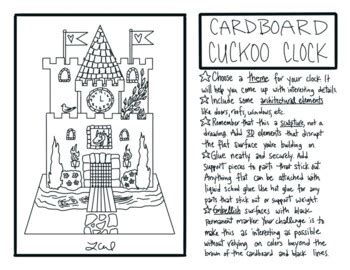 CARDBOARD
CUCKOO CLOCK
Choose a theme for your clock It
will help you come up with interesting details.
Include some architectural elements
like doors, roofs, windows, etc.
Remember that this a sculpture, not
a drawing. Add 3D elements that disrupt
the flat surface you're building on
Glue neatly and securely. Add
support pieces to parts that stick out.
Anything flat can be attached with
liquid school glue. Use hot glue for any
parts that stick out or support weight.
Embellish surfaces with black
permanent marker. Your challenge is to
make this as interesting as possible
without relying on colors beyond the
brown of the cardboard and black lines.